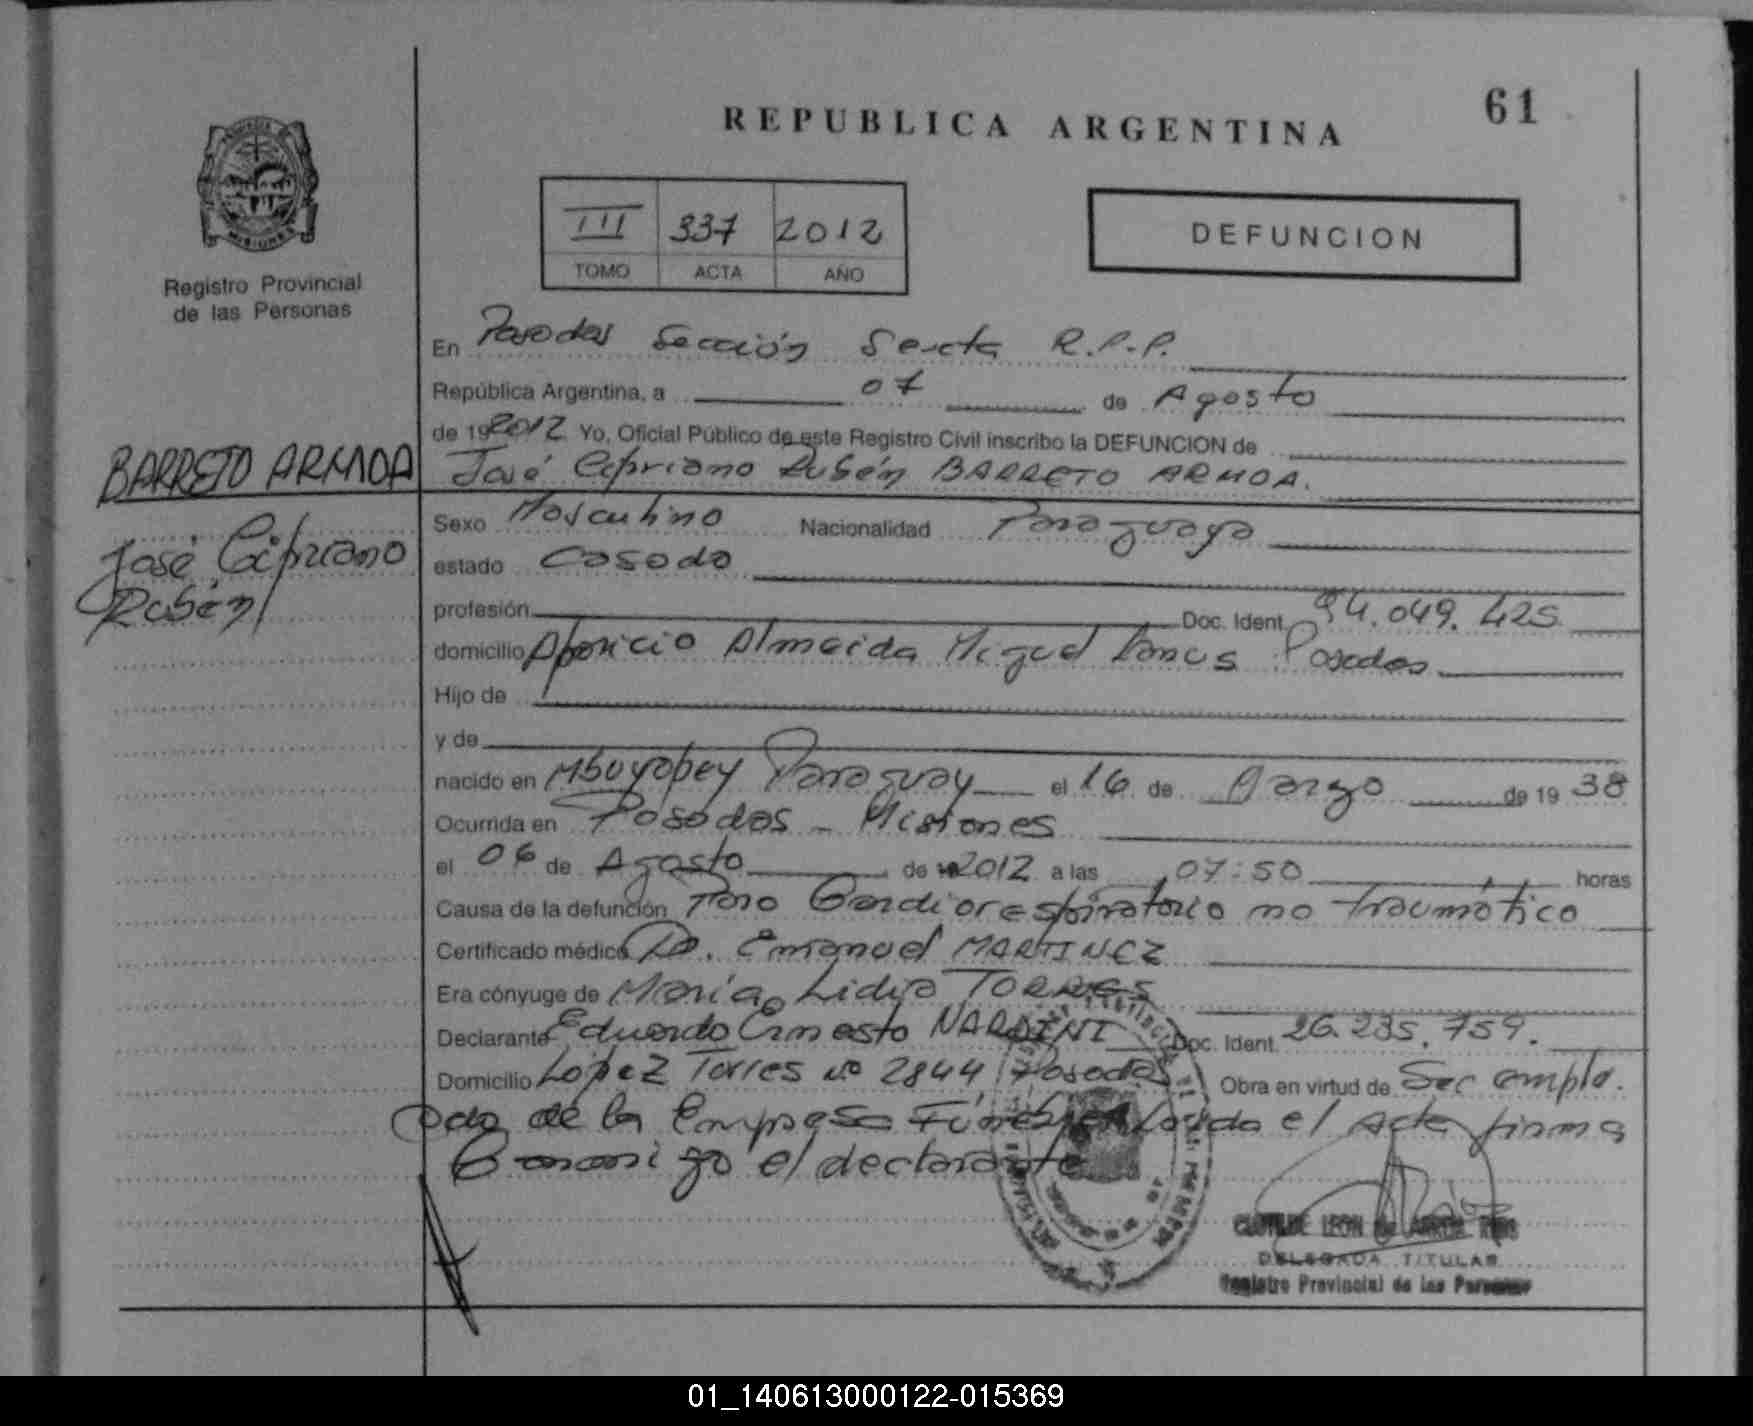 61
REPUBLICA ARGENTINA
III 337 2012
TOMO ACTA AÑO
DEFUNCION
MISIONES
Registro Provincial
de las Personas
BARRETO ARMOA
José Cipriano
Rubén
En Posadas Sección Sexta R.P.P.
República Argentina, a 07 de Agosto
de 19 2012 Yo, Oficial Público de este Registro Civil inscribo la DEFUNCION de
José Cipriano Rubén BARRETO ARMOA.
Sexo Masculino Nacionalidad Paraguaya
estado Casado
profesión Doc. Ident. 94.049.425
domicilio Aparicio Almeida Miguel Lanus Posadas
Hijo de
y de
nacido en Mbuyapey Paraguay el 16 de Marzo de 19 38
Ocurrida en Posadas - Misiones
el 06 de Agosto de 2012 a las 07:50 horas
Causa de la defunción Paro Cardiorespiratorio no traumático
Certificado médico Dr. Emanuel MARTINEZ
Era cónyuge de María Lidia TORRES
Declarante Eduardo Ernesto NARDINI Doc. Ident. 26.235.759.
Domicilio López Torres Nº 2844 Posadas Obra en virtud de Ser emplea
ado de la Empresa Fúnebre Leída el Acta firma
Conmigo el declarante
CLOTILDE LEON de
DELEGADA TITULAR
Registro Provincial de las Personas
01_140613000122-015369